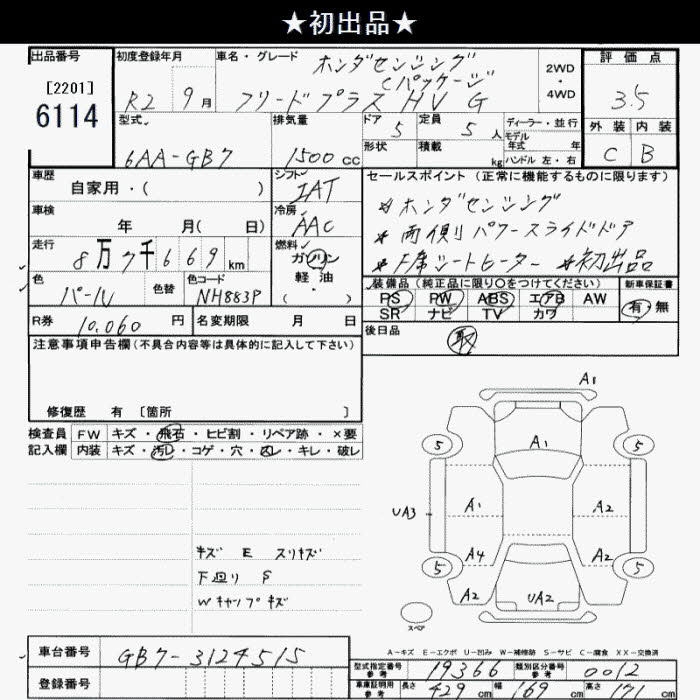 ★初出品★
出品番号
[2201]
6114
初度登録年月
R2 9月
車名・グレード
ホンダセンシング
Cパッケージ
フリードプラス HV G
2WD
・
4WD
評価点
3.5
型式
6AA-GB7
排気量
1500cc
ドア 5
定員 5人
ディーラー・並行
モデル年式 年
形状
積載 kg
ハンドル 左・右
外装 内装
C B
車歴
自家用・( )
シフト
IAT
セールスポイント (正常に機能するものに限ります)
*ホンダセンシング
*両側パワースライドドア
*F席シートヒーター *初出品
車検
年 月( 日)
冷房
AAC
走行
8万7千669km
燃料
ガソリン
軽・油
( ・ )
色
パール
色替
色コード
NH883P
装備品(純正品に限り○をつけてください)
PS PW ABS エアB AW
SR ナビ TV カワ
新車保証書
有・無
R券
10,060円
名変期限 月 日
後日品
取
注意事項申告欄(不具合内容等は具体的に記入して下さい)
修復歴 有 [箇所 ]
検査員
記入欄
FW キズ・飛石・ヒビ割・リペア跡・×要
内装 キズ・汚レ・コゲ・穴・凶レ・キレ・破レ
キズ E スリキズ
下廻り S
Wキャンプキズ
A1
A1
5 5
UA3
A1 A2
A4 A2
5 5
A2 UA2 A2
スペア
A-キズ E-エクボ U-凹み W-補修跡 S-サビ C-腐食 XX-交換済
車台番号
GB7-3124515
登録番号
型式指定番号
参考
19366
類別区分番号
参考
0012
車庫証明用
参考
長さ 429cm
幅 169cm
高さ 171cm